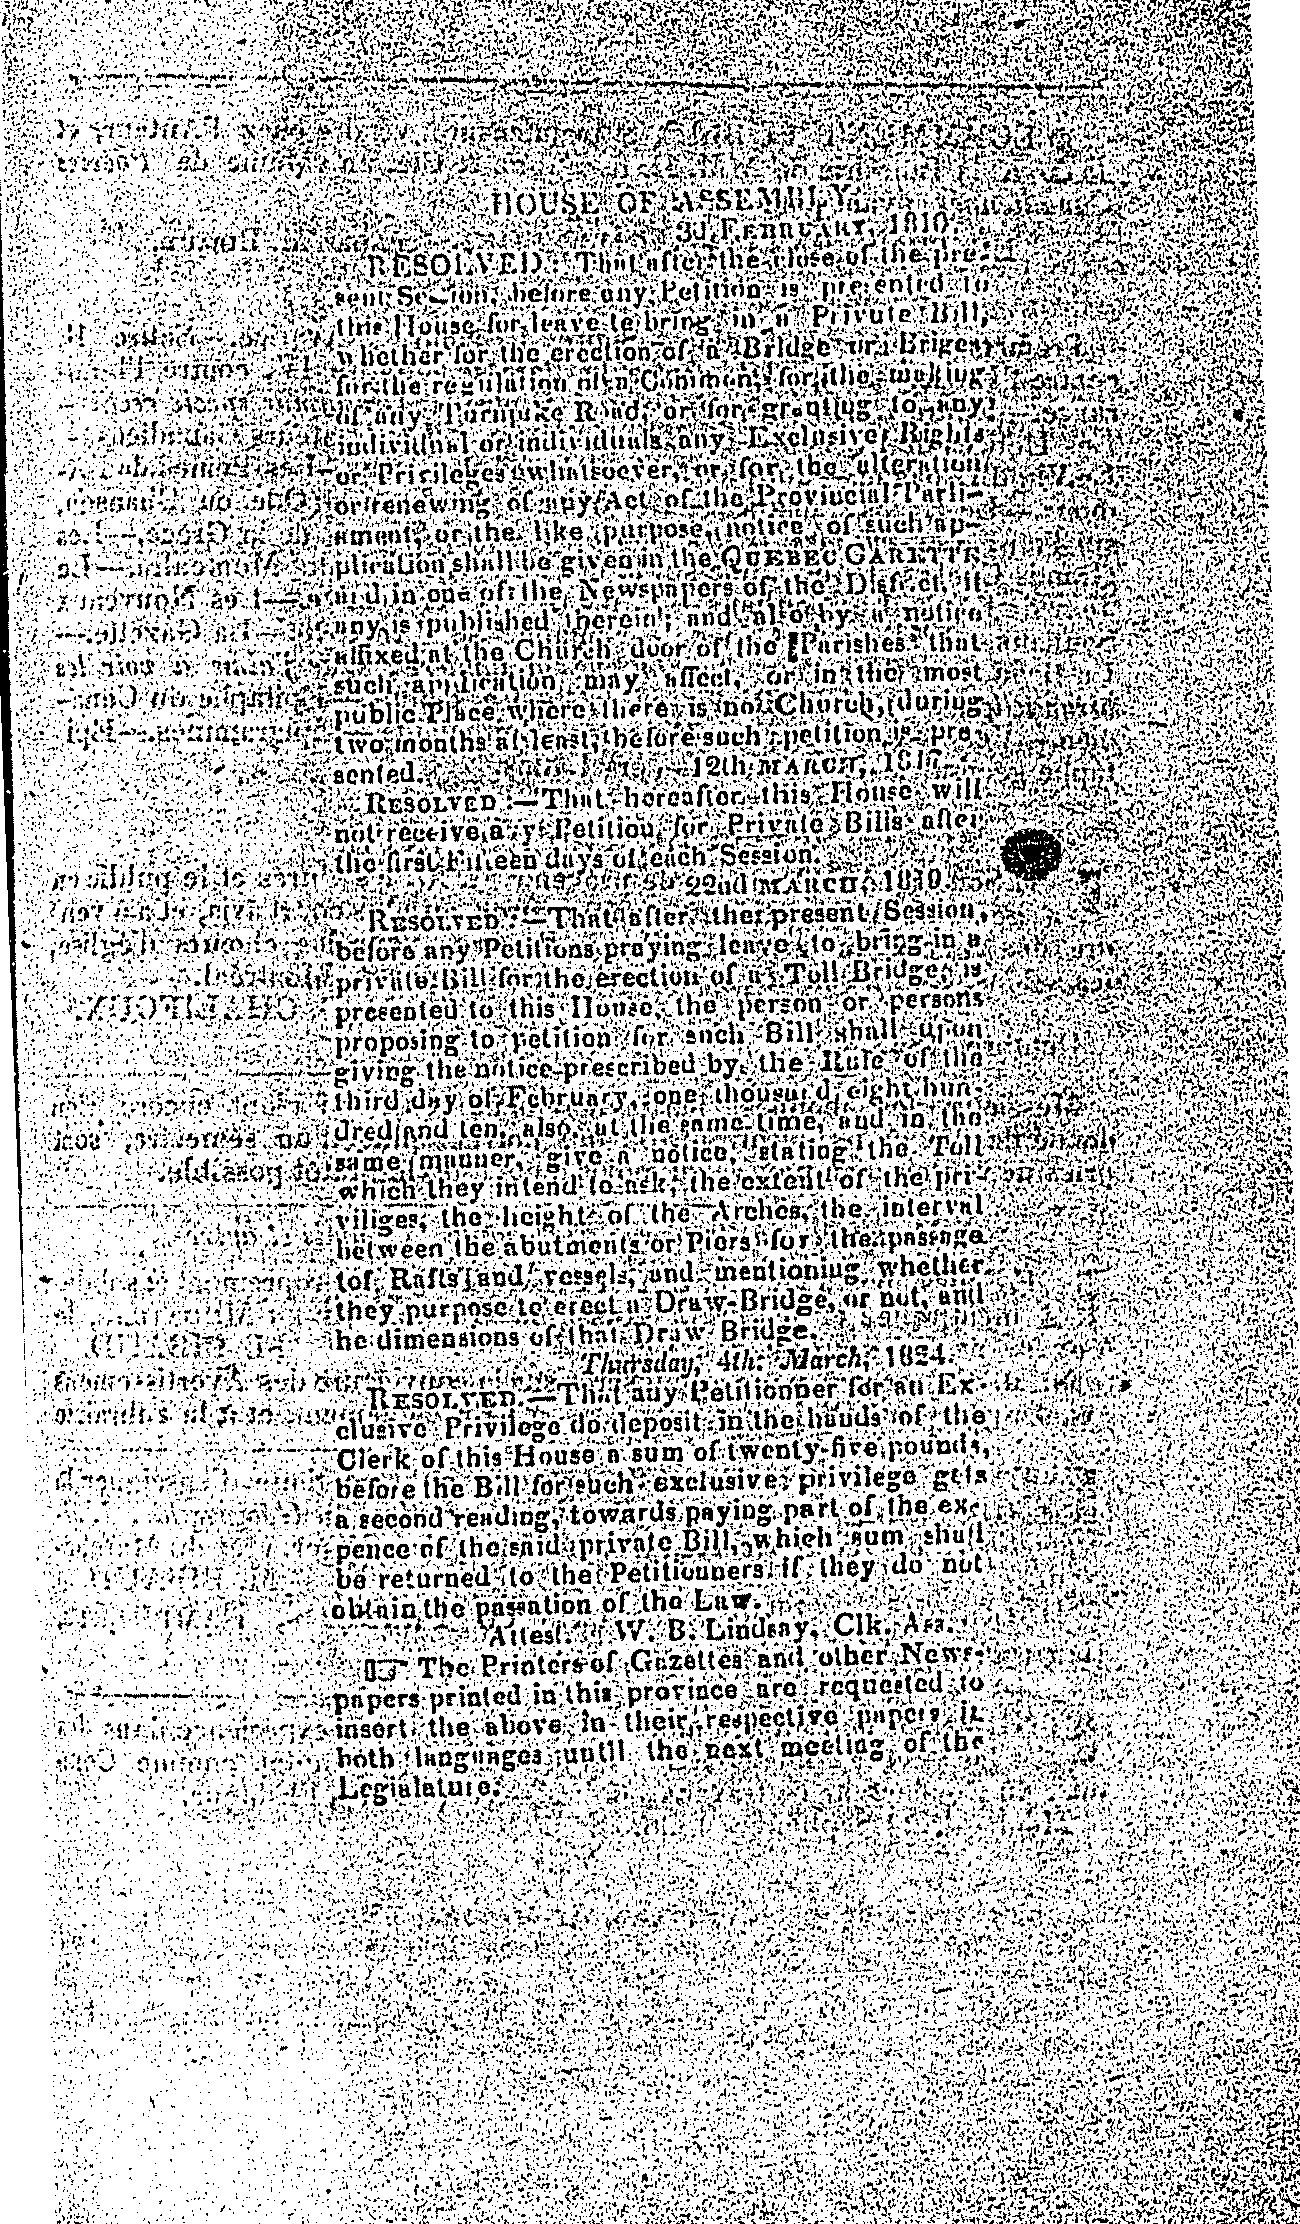 HOUSE OF ASSEMBLY,
3d FEBRUARY, 1810.
RESOLVED: That after the close of the pre-
sent Session, before any Petition is presented to
this House for leave to bring in a Private Bill,
whether for the erection of a Bridge or Briges,
for the regulation of a Common, for the making
of any Turnpike Road, or for granting to any
individual or individuals any Exclusive Rights
or Privileges whatsoever, or for the alteration
or renewing of any Act of the Provincial Parli-
ament, or the like purpose, notice of such ap-
plication shall be given in the QUEBEC GAZETTE
and in one of the Newspapers of the District, if
any is published therein; and also by a notice
affixed at the Church door of the Parishes that
such application may affect, or in the most
public Place where there is no Church, during
two months at least, before such petition is pre-
sented. 12th MARCH,
RESOLVED:—That hereafter this House will
not receive any Petition for Private Bills after
the first Fifteen days of each Session.
22nd MARCH, 1819.
RESOLVED:—That after the present Session,
before any Petitions praying leave to bring in a
private Bill for the erection of a Toll Bridge, is
presented to this House, the person or persons
proposing to petition for such Bill shall upon
giving the notice prescribed by the Rule of the
third day of February, one thousand eight hun-
dred and ten, also, at the same time, and in the
same manner, give a notice, stating the Toll
which they intend to ask, the extent of the pri-
viliges, the height of the Arches, the interval
between the abutments or Piers for the passage
tof Rafts and vessels, and mentioning whether
they purpose to erect a Draw-Bridge, or not, and
he dimensions of that Draw Bridge.
Thursday, 4th March, 1824.
RESOLVED.—That any Petitionner for an Ex-
clusive Privilege do deposit in the hands of the
Clerk of this House a sum of twenty-five pounds,
before the Bill for such exclusive privilege gets
a second reading, towards paying part of the ex-
pence of the said private Bill, which sum shall
be returned to the Petitionners if they do not
obtain the passation of the Law.
Attest. W. B. Lindsay, Clk. Ass.
☞ The Printers of Gazettes and other News-
papers printed in this province are requested to
insert the above in their respective papers in
both languages until the next meeting of the
Legislature.